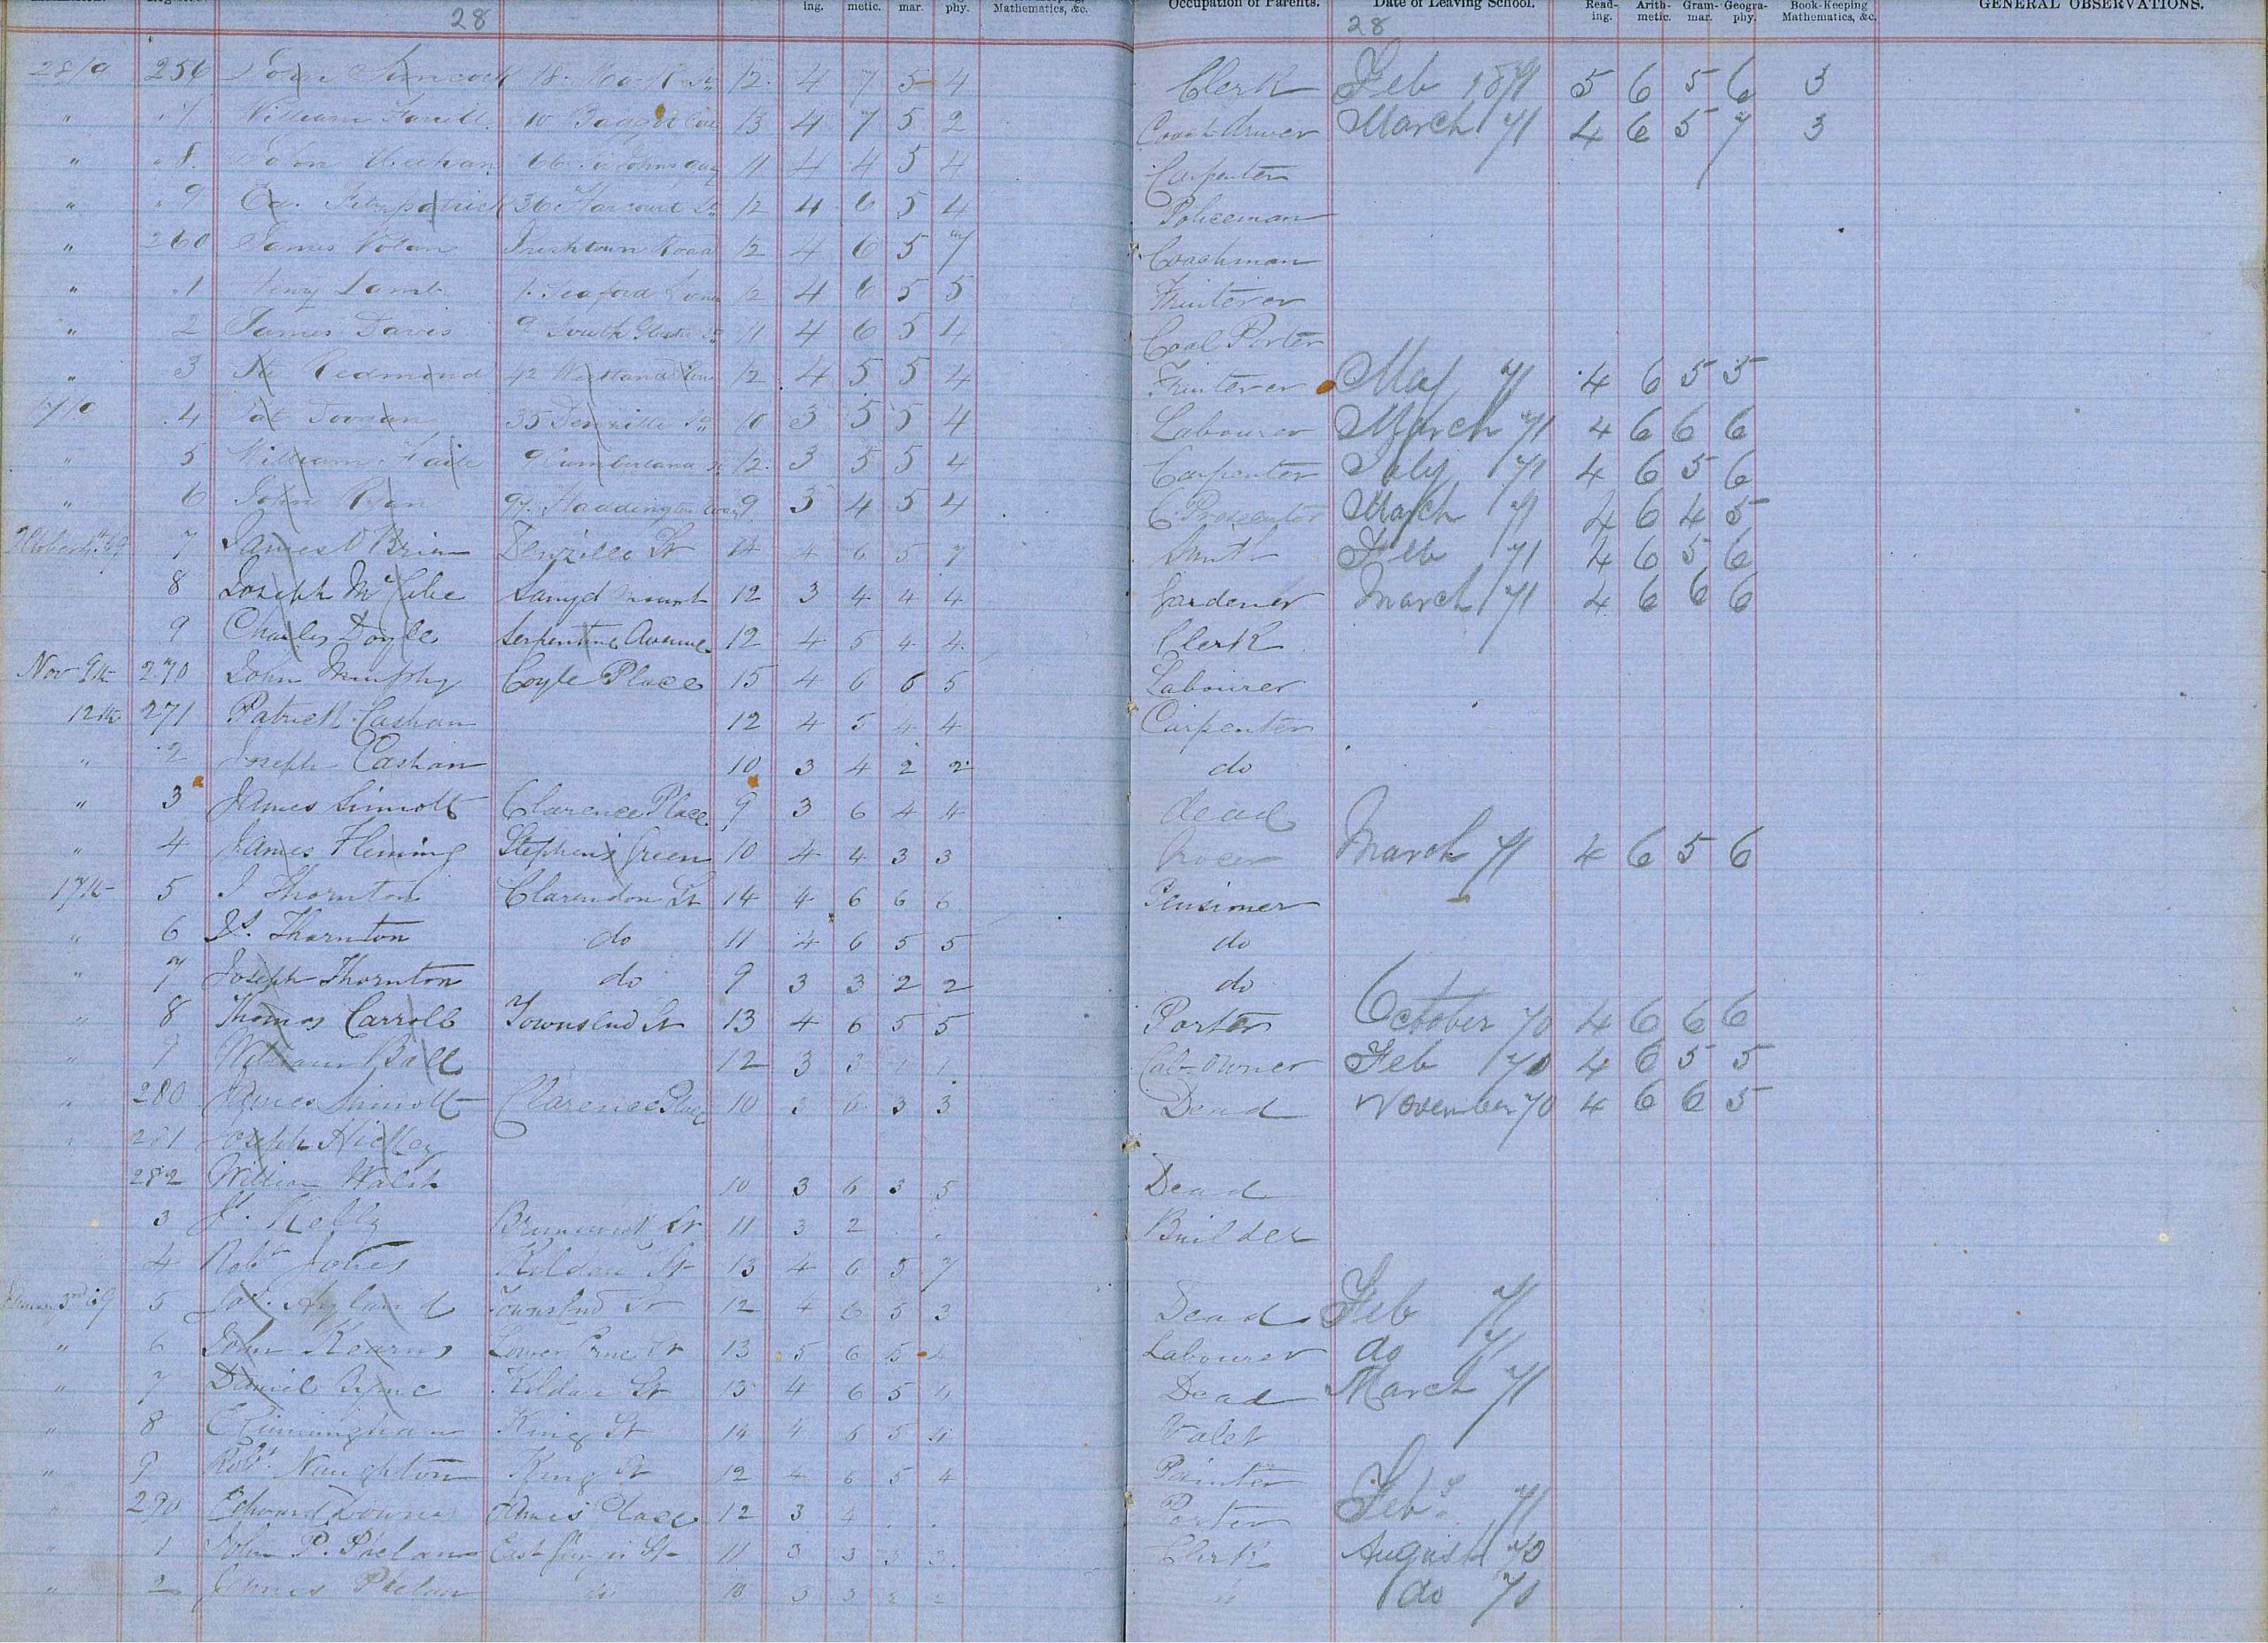 28 28
ing. metic. mar. phy. Mathematics, &c. Occupation of Parents. Date of Leaving School. Read-ing. Arith-metic. Gram-mar. Geogra-phy. Book-Keeping Mathematics, &c. GENERAL OBSERVATIONS.
256 12 4 7 5 4 Clerk Feb 1871 5 6 5 6 3
" 7 William Farrell 10 Baggot 13 4 7 5 2 Coach driver March 71 4 6 5 7 3
" 8 John Meehan 11 4 4 5 4 Carpenter
" 9 Ed. Fitzpatrick 36 Harcourt St 12 4 6 5 4 Policeman
" 260 James Nolan Irishtown Road 12 4 6 5 7 Coachman
" 1 Henry Lamb 12 4 6 5 5
" 2 James Davis 9 South 11 4 6 5 4 Coal Porter
" 3 Redmond 42 Westland Row 12 4 5 5 4 May 71 4 6 5 5
4 Pat Doogan 35 Denzille St 10 3 5 5 4 Labourer March 71 4 6 6 6
" 5 William 9 Cumberland St 12 3 5 5 4 Carpenter July 71 4 6 5 6
" 6 John Ryan Haddington Road 9 3 4 5 4 March 71 4 6 4 5
7 James O Brien Denzille St 14 4 6 5 7 Smith Feb 71 4 6 5 6
8 Joseph McCabe Sandymount 12 3 4 4 4 Gardener March 71 4 6 6 6
9 Charles Doyle Serpentine Avenue 12 4 5 4 4 Clerk
Nov 9th 270 John Murphy Coyle Place 15 4 6 6 5 Labourer
12th 271 Patrick Cashan 12 4 5 4 4 Carpenter
" 2 Joseph Cashan 10 3 4 2 2 do
" 3 James Sinnott Clarence Place 9 3 6 4 4 dead
" 4 James Fleming Stephens Green 10 4 4 3 3 Grocer March 71 4 6 5 6
17th 5 J Thornton Clarendon St 14 4 6 6 6 Pensioner
" 6 Thornton do 11 4 6 5 5 do
" 7 Joseph Thornton do 9 3 3 2 2 do
" 8 Thomas Carroll Townsend St 13 4 6 5 5 Porter October 70 4 6 6 6
" 9 William Ball 12 3 3 1 1 Cab-Owner Feb 70 4 6 5 5
" 280 James Sinnott Clarence Place 10 3 6 3 3 Dead November 70 4 6 6 5
" 281 Joseph Hickey
282 William Walsh 10 3 6 3 5 Dead
3 J. Kelly Brunswick St 11 3 2 Builder
4 Robt Jones Kildare St 13 4 6 5 7
5 Jos. Aylward Townsend St 12 4 6 5 3 Dead Feb 71
" 6 John Kearns 13 5 6 5 4 Labourer do 71
" 7 Daniel Byrne Kildare St 13 4 6 5 4 Dead March 71
" 8 Cunningham King St 14 4 6 5 4 Valet
" 9 Robt. Naughton King St 12 4 6 5 4 Painter
" 290 Edward Downes Place 12 3 4 Porter Feby 71
" 1 John P. Phelan East St 11 3 3 3 3 Clerk August 70
" 2 James Phelan do 10 3 3 " do 70